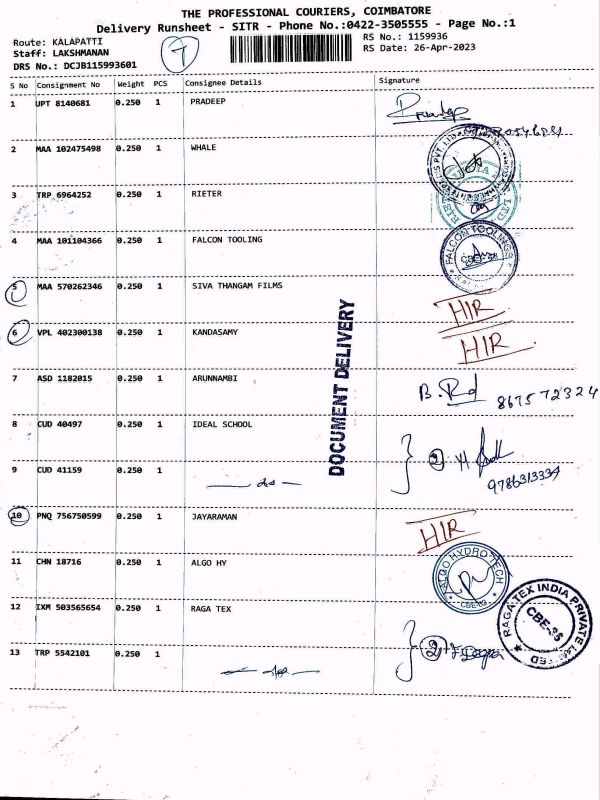 THE PROFESSIONAL COURIERS, COIMBATORE
Delivery Runsheet - SITR - Phone No.:0422-3505555 - Page No.:1
Route: KALAPATTI
7
RS No.: 1159936
Staff: LAKSHMANAN
RS Date: 26-Apr-2023
DRS No.: DCJB115993601
S No Consignment No Weight PCS Consignee Details Signature
1 UPT 8140681 0.250 1 PRADEEP Pradeep
2 MAA 102475498 0.250 1 WHALE
3 TRP 6964252 0.250 1 RIETER
4 MAA 101104366 0.250 1 FALCON TOOLING FALCON TOOLINGS
5 MAA 570262346 0.250 1 SIVA THANGAM FILMS HIR
6 VPL 402300138 0.250 1 KANDASAMY HIR
DOCUMENT DELIVERY
7 ASD 1182015 0.250 1 ARUNNAMBI B. 867572324
8 CUD 40497 0.250 1 IDEAL SCHOOL 2
9 CUD 41159 0.250 1 9786313334
10 PNQ 756750599 0.250 1 JAYARAMAN HIR
11 CHN 18716 0.250 1 ALGO HY ALGO HYDRO TECH CBE-62
12 IXM 503565654 0.250 1 RAGA TEX RAGA TEX INDIA PRIVATE LIMITED CBE-35
13 TRP 5542101 0.250 1 2